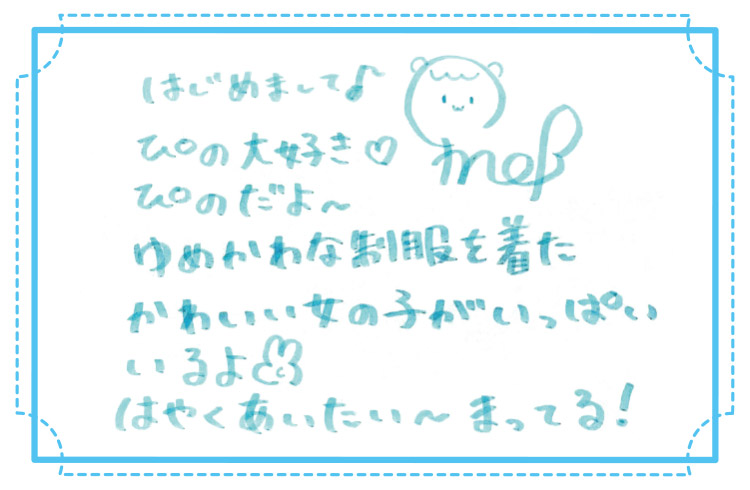 はじめまして♪
ぴの大好き♡
ぴのだよ〜
ゆめかわな制服を着た
かわいい女の子がいっぱい
いるよ
はやくあいたい〜 まってる!